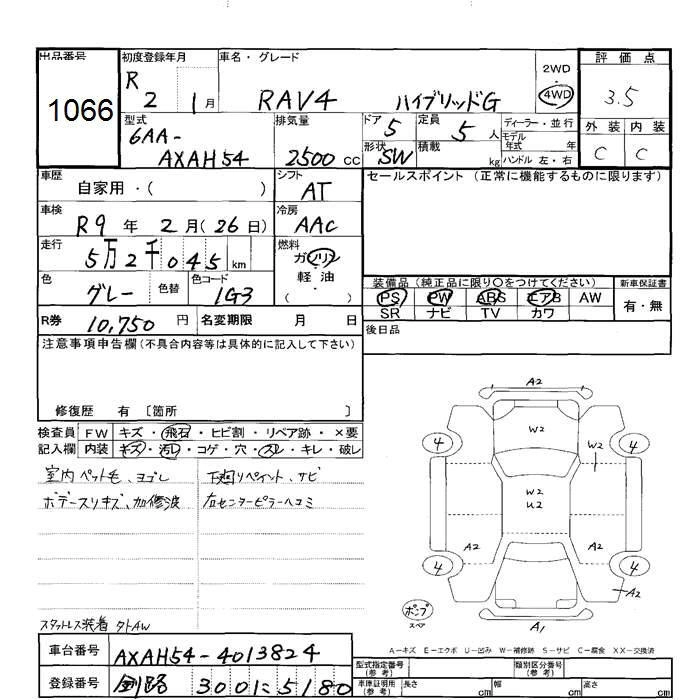 出品番号 初度登録年月 車名・グレード 評価点
1066 R 2 1月 RAV4 ハイブリッドG 2WD 4WD 3.5
外装 内装
C C
型式 排気量 ドア 定員 ディーラー・並行
6AA-AXAH54 2500cc 5 5人 モデル年式 年
形状 積載 ハンドル 左・右
SW kg
車歴 シフト セールスポイント (正常に機能するものに限ります)
自家用・( ) AT
車検 冷房
R9年2月(26日) AAC
走行 燃料
5万2千045km ガソリン
軽油
( )
色 色替 色コード
グレー 1G3
装備品 (純正品に限り○をつけてください) 新車保証書
PS PW ABS エアB AW 有・無
SR ナビ TV カワ
R券 10,750円 名変期限 月 日
後日品
注意事項申告欄(不具合内容等は具体的に記入して下さい)
修復歴 有 〔箇所 〕
検査員記入欄 FW キズ・飛石・ヒビ割・リペア跡・×要
内装 キズ・汚レ・コゲ・穴・スレ・キレ・破レ
室内ペット毛、ヨゴレ 下廻リペイント、サビ
ボデースリキズ、加修波 右センターピラーヘコミ
スタットレス装着 夕トAW
A2
W2
4 4
W2
W2
U2
A2 A2
4 4
A2
ポンプ
スペア
A1
A-キズ E-エクボ U-凹み W-補修跡 S-サビ C-腐食 XX-交換済
車台番号 AXAH54-4013824
登録番号 釧路 300に5180
型式指定番号(参考) 類別区分番号(参考)
車庫証明用(参考) 長さ cm 幅 cm 高さ cm